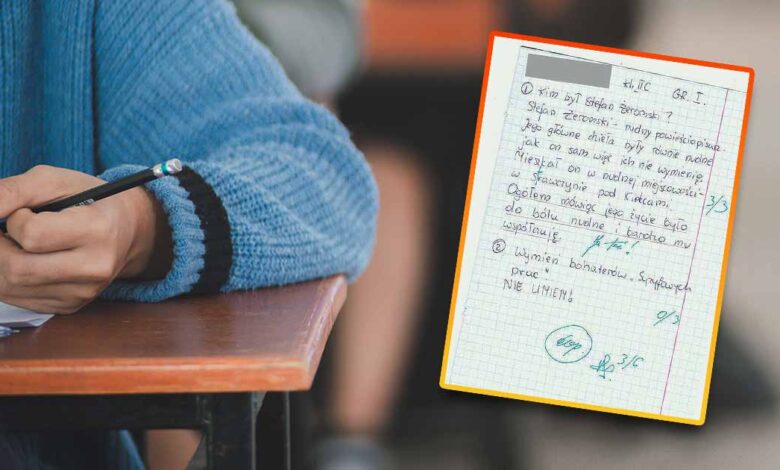 kl. II C GR. I.
① Kim był Stefan Żeromski?
Stefan Żeromski - nudny powieściopisarz
Jego główne dzieła były równie nudne
jak on sam więc ich nie wymienię.
Mieszkał on w nudnej miejscowości -
w Strawczynie pod Kielcami. 3/3
Ogółem mówiąc jego życie było
do bólu nudne i bardzo mu
współczuję.
② Wymień bohaterów „Syzyfowych
prac"
NIE UMIEM!
0/3
dop
3/6